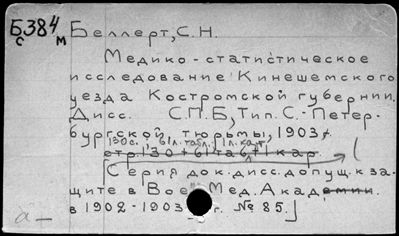 Б384 Беллерт, С.Н.
с м
Медико-статистическое
исследование Кинешемского
уезда Костромской губернии.
Дисс. С.П.Б, Тип. С.-Петер-
бургской тюрьмы, 1903 г.
130с., 61л. табл., 1л. карт.
стр. 130 + 61 та б. + 1 кар.
[Серия док. дисс. допущ. к за-
щите в Вое Мед. Академии.
в 1902-1903 г. № 85.]
а —